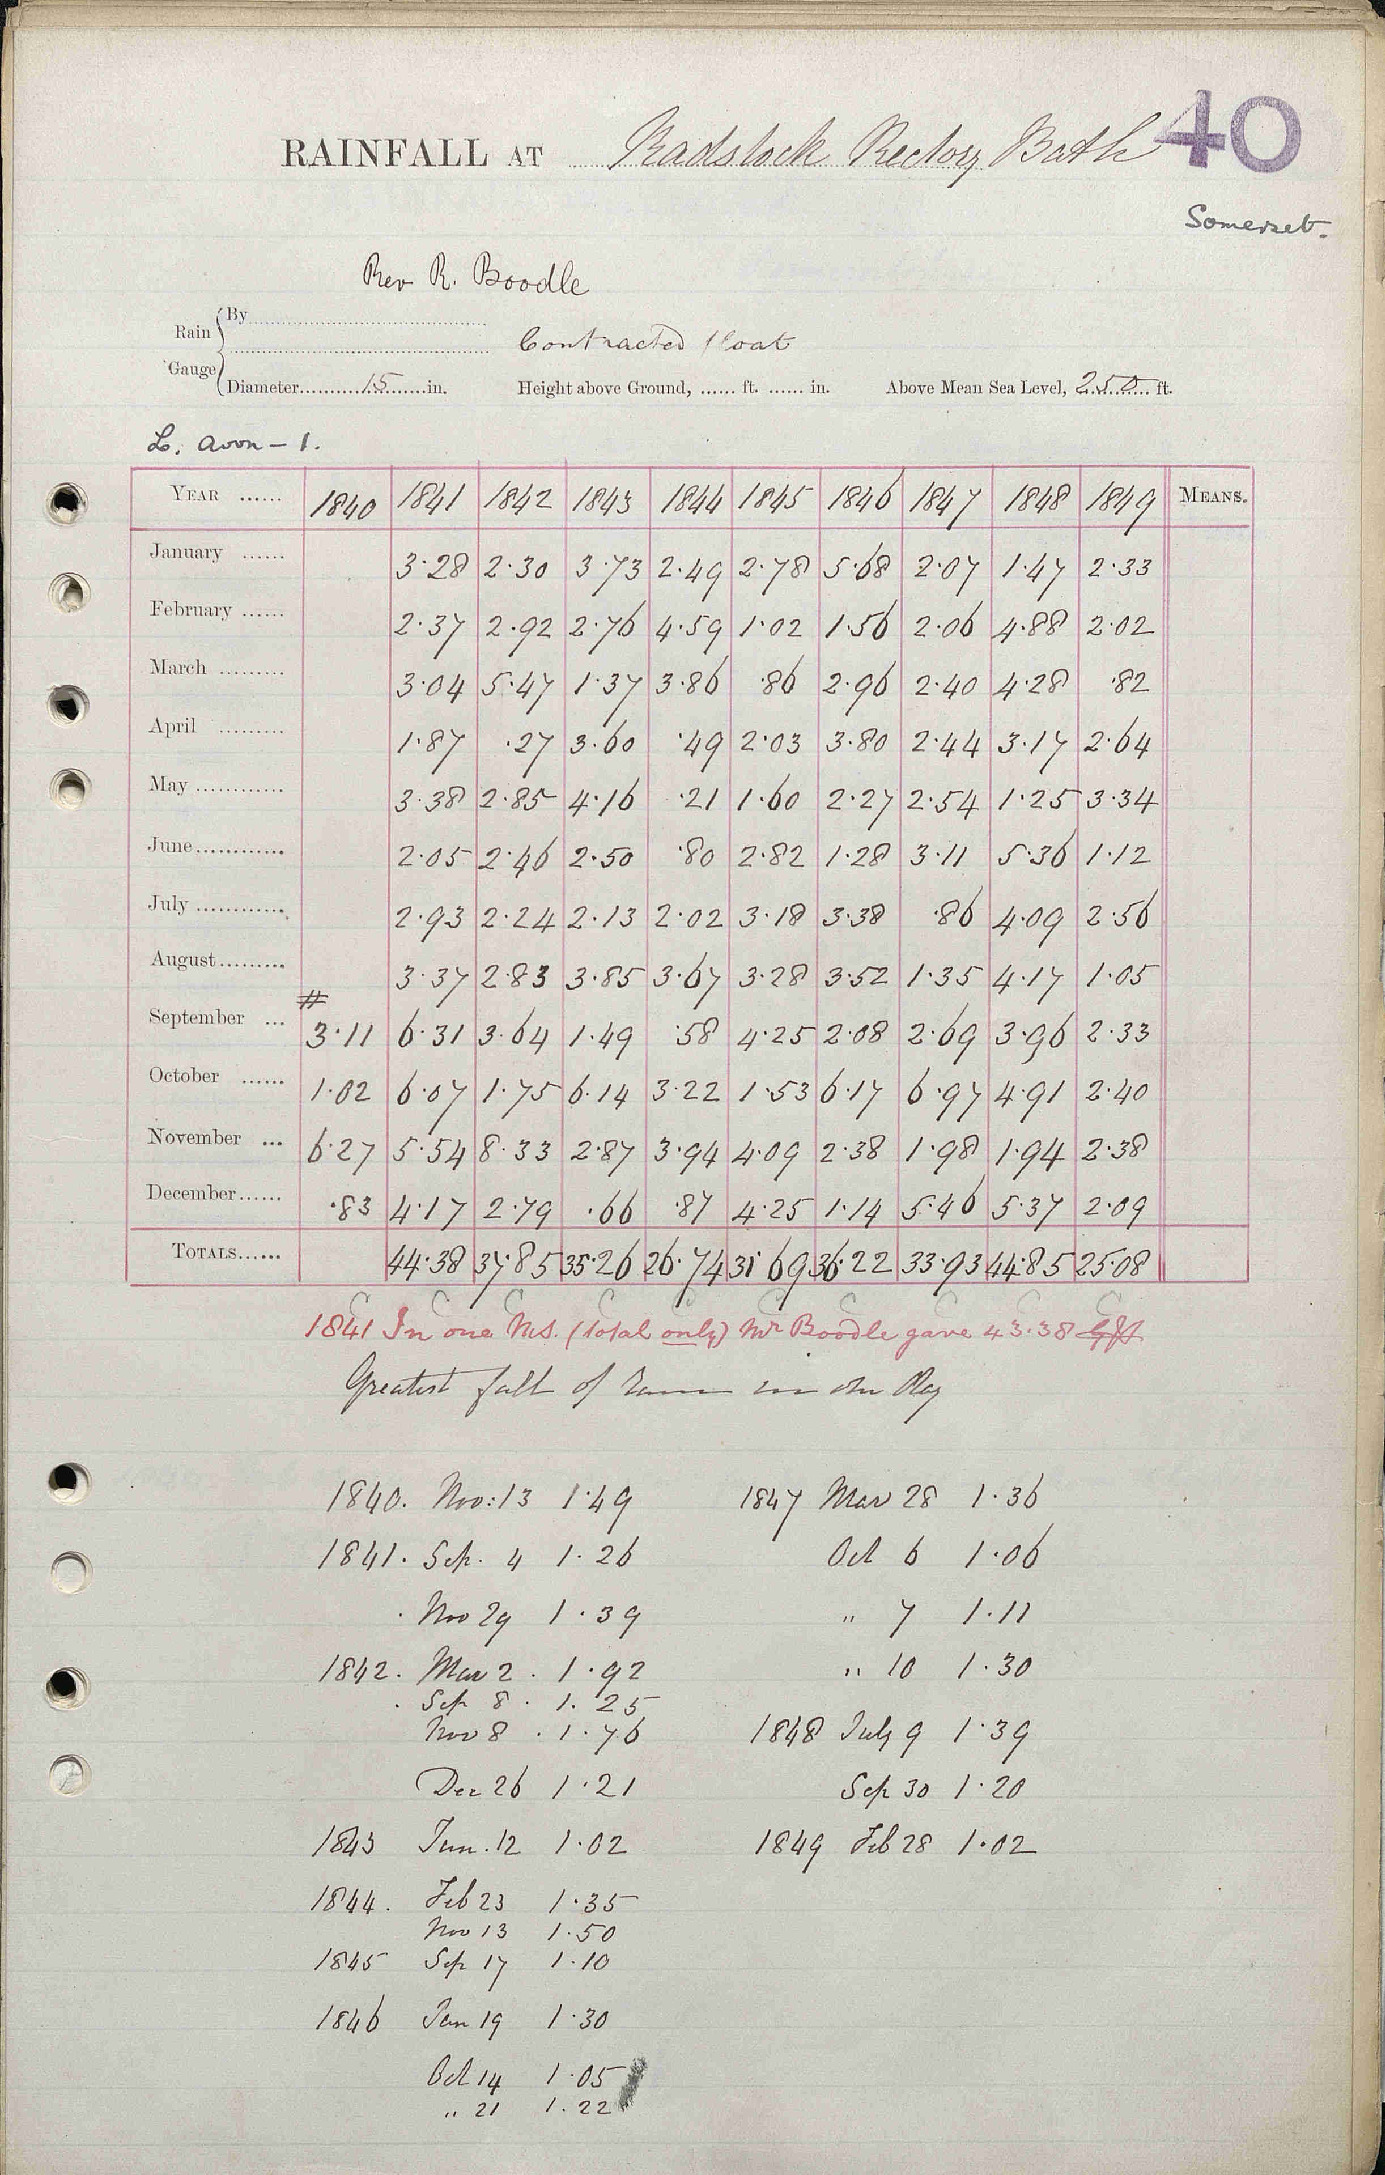 40
RAINFALL AT Radstock Rectory Bath
Somerset.
Rev R. Boodle
Rain Gauge { By
Contracted float
Diameter 15 in. Height above Ground, ...... ft. ...... in. Above Mean Sea Level, 250 ft.
L. Avon - 1.
YEAR ...... 1840 1841 1842 1843 1844 1845 1846 1847 1848 1849 MEANS.
January ...... 3.28 2.30 3.73 2.49 2.78 5.68 2.07 1.47 2.33
February ...... 2.37 2.92 2.76 4.59 1.02 1.56 2.06 4.88 2.02
March ......... 3.04 5.47 1.37 3.86 .86 2.96 2.40 4.28 .82
April ......... 1.87 .27 3.60 .49 2.03 3.80 2.44 3.17 2.64
May ............ 3.38 2.85 4.16 .21 1.60 2.27 2.54 1.25 3.34
June............ 2.05 2.46 2.50 .80 2.82 1.28 3.11 5.36 1.12
July ............ 2.93 2.24 2.13 2.02 3.18 3.38 .86 4.09 2.56
August......... 3.37 2.83 3.85 3.67 3.28 3.52 1.35 4.17 1.05
#
September ... 3.11 6.31 3.64 1.49 .58 4.25 2.08 2.69 3.96 2.33
October ...... 1.02 6.07 1.75 6.14 3.22 1.53 6.17 6.97 4.91 2.40
November ... 6.27 5.54 8.33 2.87 3.94 4.09 2.38 1.98 1.94 2.38
December...... .83 4.17 2.79 .66 .87 4.25 1.14 5.46 5.37 2.09
TOTALS...... 44.38 37.85 35.26 26.74 31.69 36.22 33.93 44.85 25.08
C C C C C C C C C
1841 In one MS. (total only) Mr Boodle gave 43.38
Greatest fall of rain in one Day
1840. Nov: 13 1.49 1847 Mar 28 1.36
1841. Sep. 4 1.26 Oct 6 1.06
Nov 29 1.39 " 7 1.11
1842. Mar 2. 1.92 " 10 1.30
Sep 8. 1.25
Nov 8. 1.76 1848 July 9 1.39
Dec 26 1.21 Sep 30 1.20
1843 Jan. 12 1.02 1849 Feb 28 1.02
1844. Feb 23 1.35
Nov 13 1.50
1845 Sep 17 1.10
1846 Jan 19 1.30
Oct 14 1.05
" 21 1.22